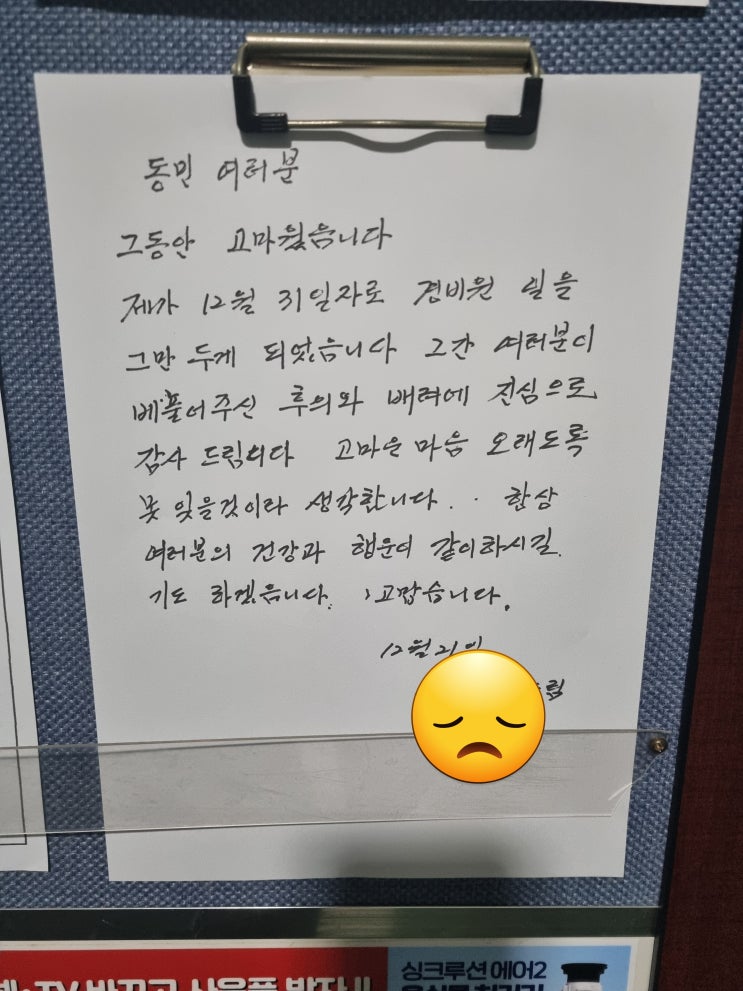 동민 여러분
그동안 고마웠읍니다
제가 12월 31일자로 경비원 일을
그만 두게 되었읍니다 그간 여러분이
베풀어주신 후의와 배려에 진심으로
감사 드립니다 고마운 마음 오래도록
못 잊을것이라 생각합니다. . 항상
여러분의 건강과 행운이 같이하시길
기도 하겠읍니다. 고맙습니다.
12월 21일
드림
TV 바꾸고 사은품 받자!!
싱크루션 에어2